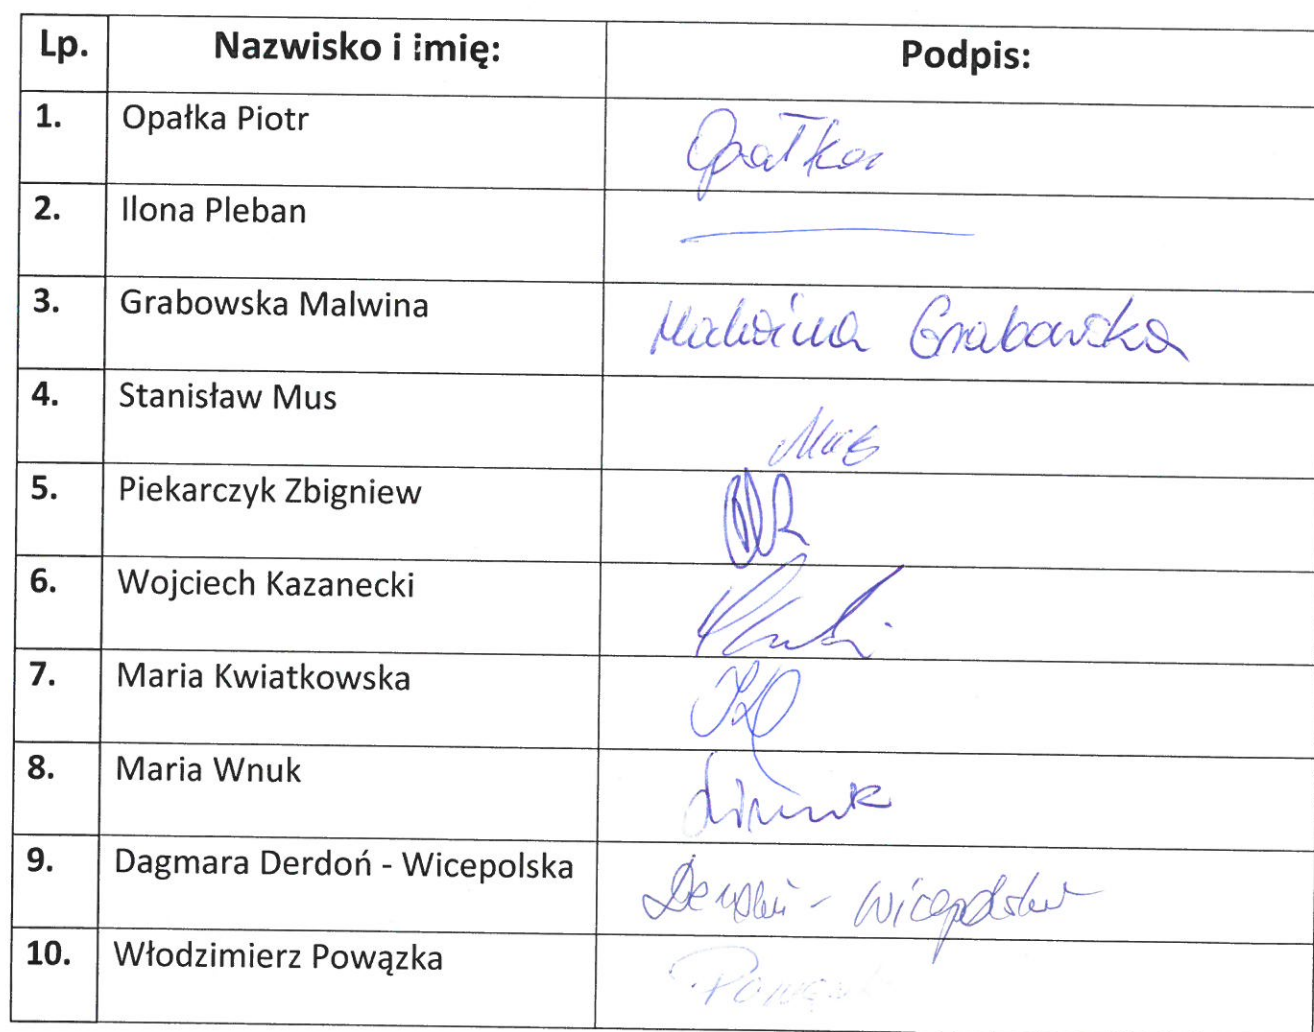 Lp. Nazwisko i imię: Podpis:
1. Opałka Piotr Opałka
2. Ilona Pleban
3. Grabowska Malwina Malwina Grabowska
4. Stanisław Mus Mus
5. Piekarczyk Zbigniew
6. Wojciech Kazanecki
7. Maria Kwiatkowska
8. Maria Wnuk
9. Dagmara Derdoń - Wicepolska Derdoń - Wicepolska
10. Włodzimierz Powązka